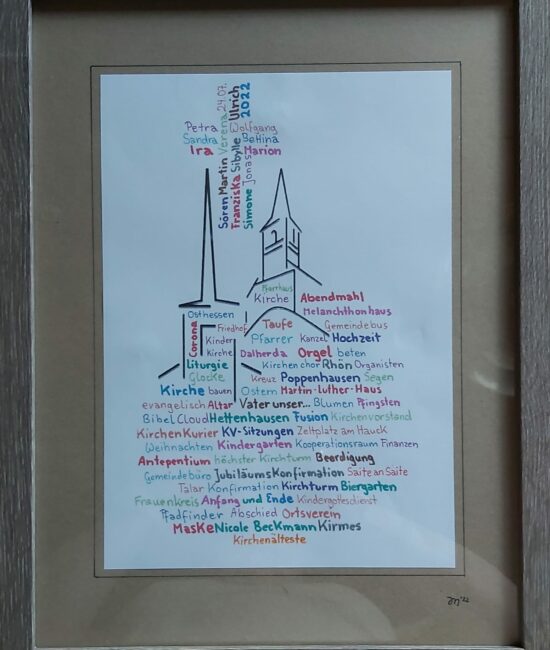 24.07. 2022
Verena Ulrich
Petra Wolfgang
Sandra Bettina
Ira Marion
Sören Martin Sibylle
Franziska Jonas
Simone
Pfarrhaus
Kirche Abendmahl
Osthessen Melanchthonhaus
Corona Friedhof Taufe Gemeindebus
Kinder Pfarrer Kanzel Hochzeit
Kirche Dalherda Orgel beten
Liturgie Kirchenchor Rhön Organisten
Glocke Kreuz Poppenhausen Segen
Kirche baum Ostern Martin-Luther-Haus
evangelisch Altar Vater unser... Blumen Pfingsten
Bibel Cloud Hettenhausen Fusion Kirchenvorstand
KirchenKurier KV-Sitzungen Zeltplatz am Hauck
Weihnachten Kindergarten Kooperationsraum Finanzen
Antependium höchster Kirchturm Beerdigung
Gemeindebüro JubiläumsKonfirmation Saite an Saite
Talar Konfirmation Kirchturm Biergarten
Frauenkreis Anfang und Ende Kindergottesdienst
Pfadfinder Abschied Ortsverein
Maske Nicole Beckmann Kirmes
Kirchenälteste